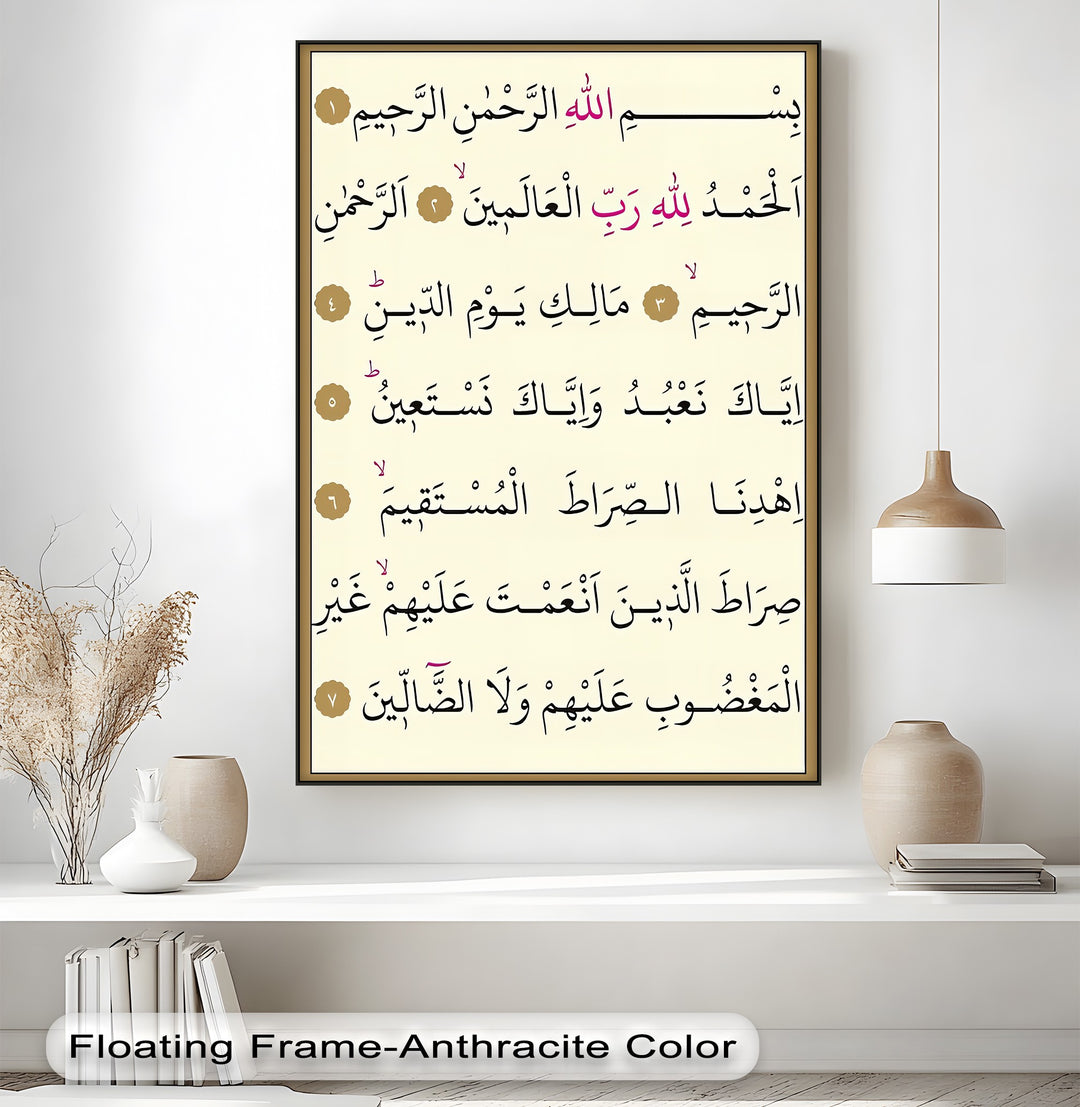 بِسْــــــــمِ اللّٰهِ الرَّحْمٰنِ الرَّح۪يمِ ١
اَلْحَمْـدُ لِلّٰهِ رَبِّ الْعَالَم۪ينَۙ ٢ اَلرَّحْمٰنِ
الرَّح۪يـمِۙ ٣ مَالِـكِ يَـوْمِ الدّ۪يـنِۜ ٤
اِيَّـاكَ نَعْبُـدُ وَاِيَّـاكَ نَسْـتَع۪ينُۜ ٥
اِهْدِنَـا الـصِّرَاطَ الْمُسْـتَق۪يمَۙ ٦
صِرَاطَ الَّذ۪يـنَ اَنْعَمْـتَ عَلَيْهِمْۙ غَيْرِ
الْمَغْضُـوبِ عَلَيْهِمْ وَلَا الضَّٓالّ۪ينَ ٧
Floating Frame-Anthracite Color